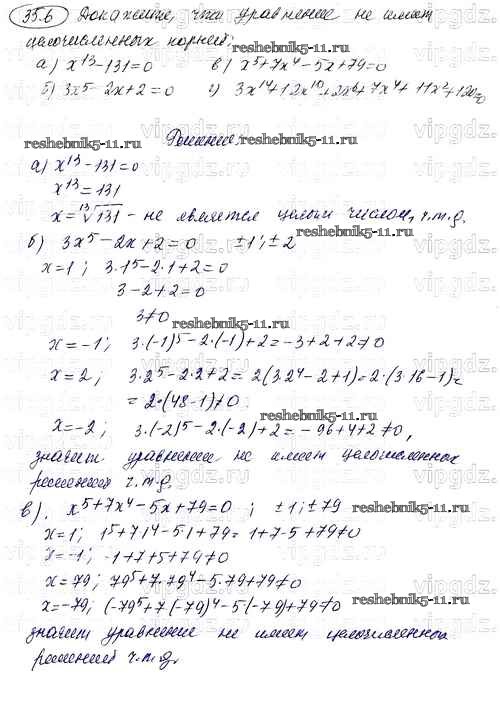 35.6 Докажите, что уравнение не имеет
целочисленных корней:
а) x¹³-131=0 в) x⁵+7x⁴-5x+79=0
б) 3x⁵-2x+2=0 г) 3x¹⁴+12x¹⁰+2x⁶+7x⁴+11x²+120=0
reshebnik5-11.ru Решение. reshebnik5-11.ru
а) x¹³-131=0
x¹³=131
x=¹³√131 - не является целым числом, ч.т.д.
б) 3x⁵-2x+2=0 ±1; ±2
x=1; 3·1⁵-2·1+2=0
3-2+2=0
3≠0
reshebnik5-11.ru
x=-1; 3·(-1)⁵-2·(-1)+2=-3+2+2≠0
x=2; 3·2⁵-2·2+2=2(3·2⁴-2+1)=2·(3·16-1)=
=2·(48-1)≠0
reshebnik5-11.ru
x=-2; 3·(-2)⁵-2·(-2)+2=-96+4+2≠0,
значит уравнение не имеет целочисленных
решений ч.т.д.
reshebnik5-11.ru
в). x⁵+7x⁴-5x+79=0; ±1; ±79
x=1; 1⁵+7·1⁴-5·1+79=1+7-5+79≠0
x=-1; -1+7+5+79≠0
x=79; 79⁵+7·79⁴-5·79+79≠0
reshebnik5-11.ru
x=-79; (-79⁵+7(-79)⁴-5(-79)+79≠0
значит уравнение не имеет целочисленных
решений ч.т.д.
reshebnik5-11.ru